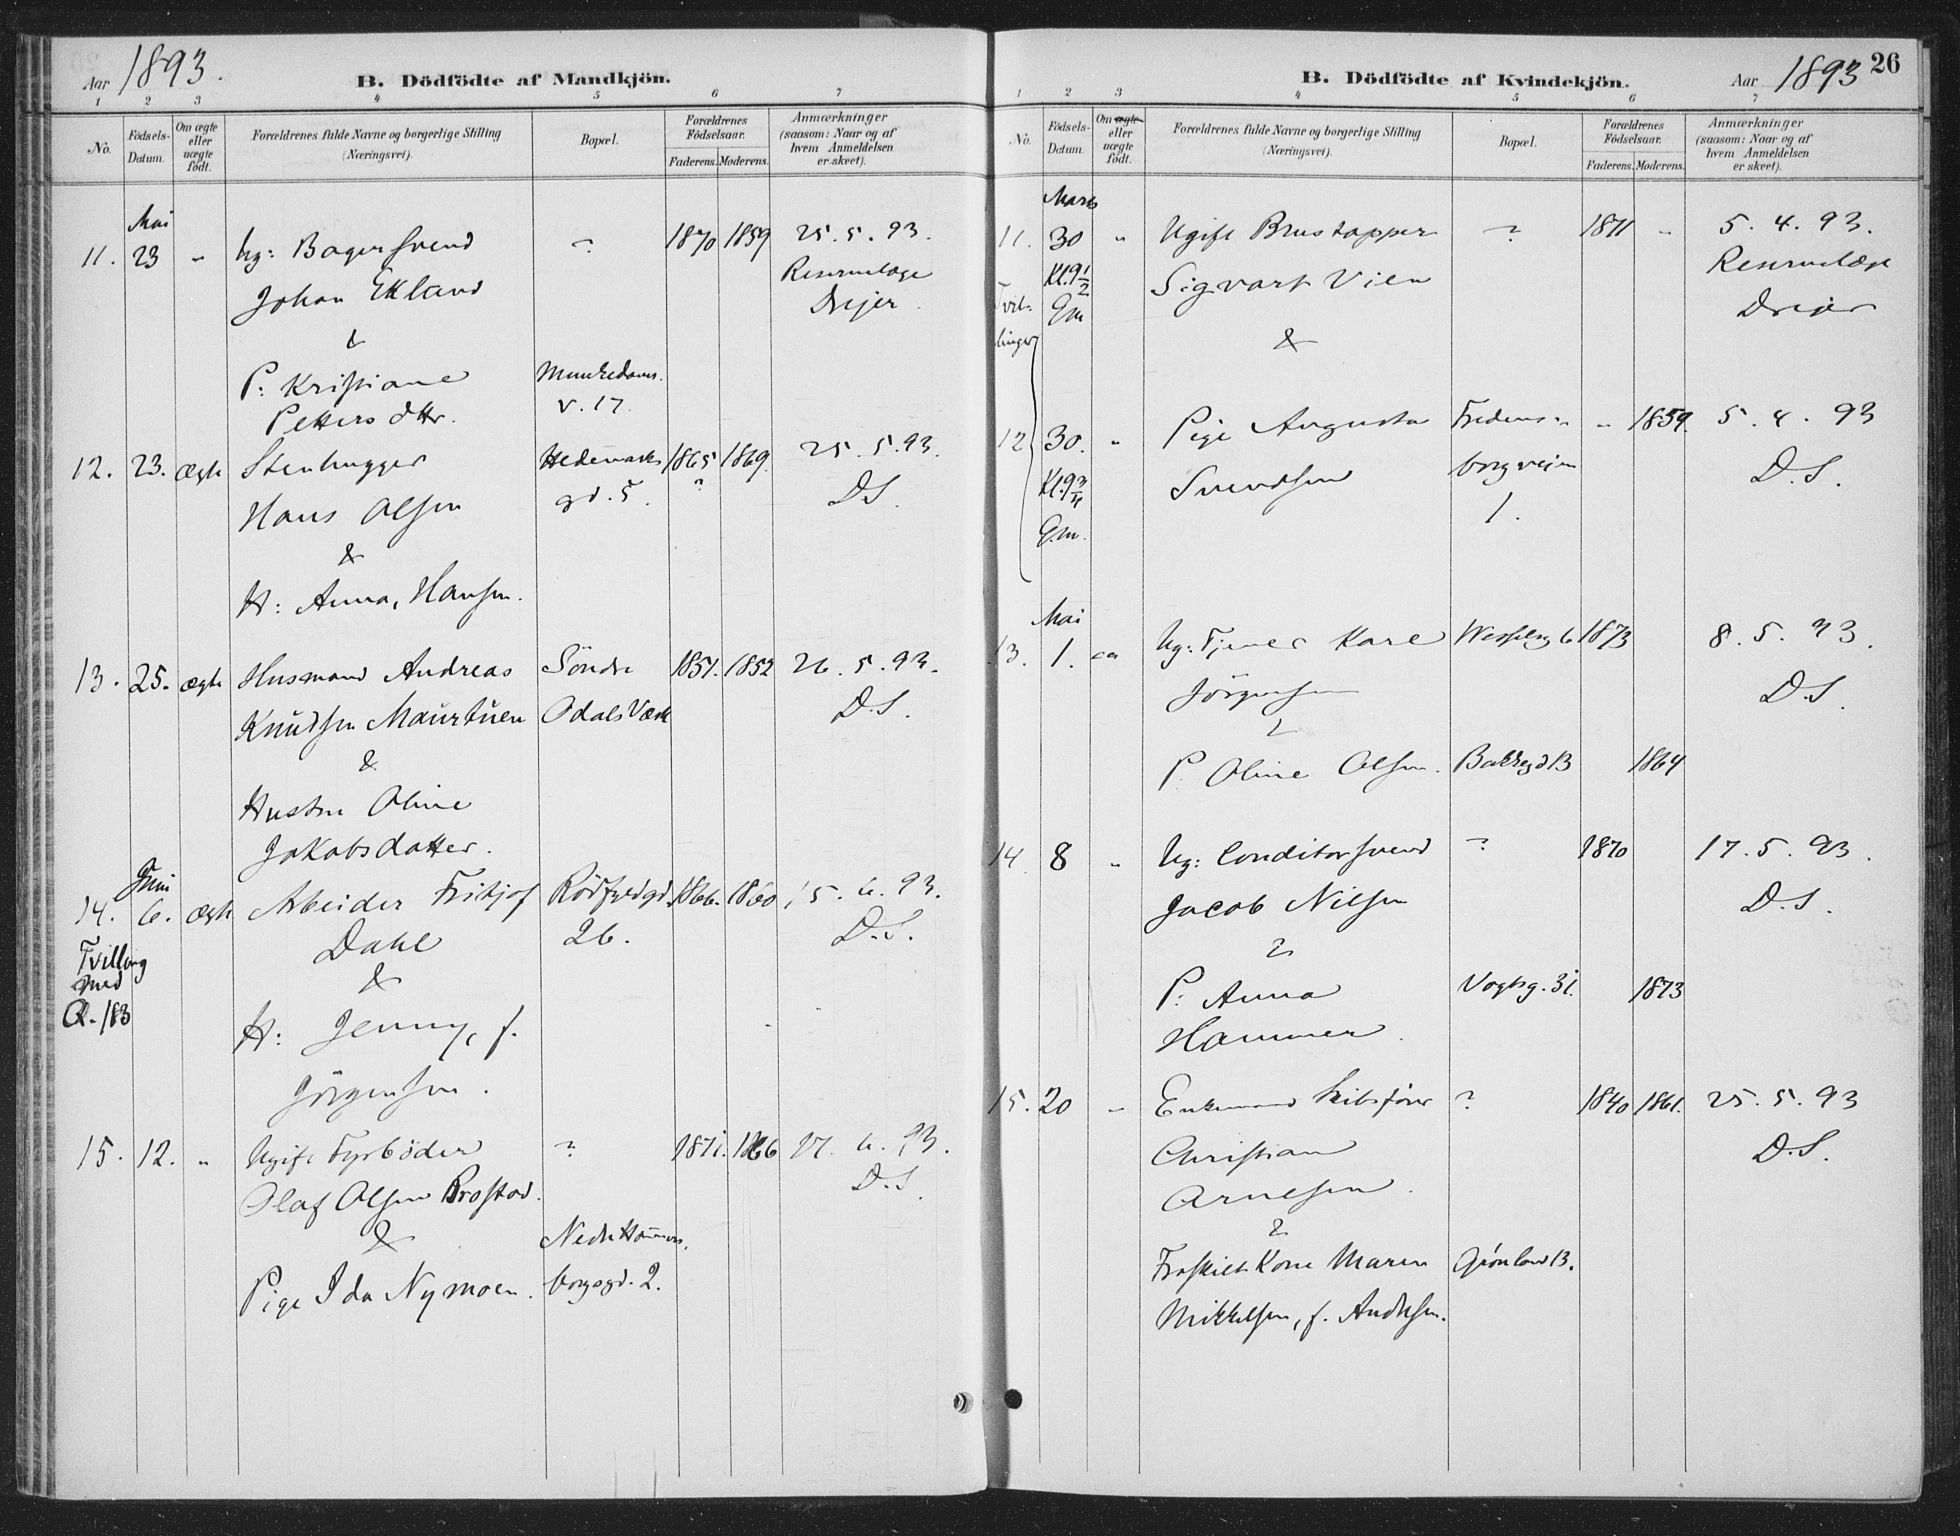 Aar 1893.
B. Dödfödte af Mandkjön.
1 2 3 4 5 6 7
No. Födsels-Datum. Om ægte eller uægte født. Forældrenes fulde Navne og borgerlige Stilling (Næringsvei). Bopæl. Forældrenes Födselsaar. Faderens. Moderens. Anmærkninger (saasom: Naar og af hvem Anmeldelsen er skeet).
Mai
11. 23 " Ug: Bagersvend ? 1870 1859 25. 5. 93.
Johan Ekland Reservelæge
& Drejer.
P: Kristiane Munkedams.
Petters dttr. v. 17.
12. 23. ægte Stenhugger Hedemarks 1865 1869. 25. 5. 93.
Hans Olsen gd. 5. ? D.S.
&
H: Anna, Hansen.
13. 25. ægte Husmand Andreas Söndre 1851. 1852 26. 5. 93.
Knudsen Maurtuen Odals Værk D.S.
&
Hustru Oline
Jakobsdatter.
Juni
14. 6. ægte Arbeider Fritjof Rödfyldgd. 1866. 1860 15. 6. 93.
Tvilling Dahl 26. D.S.
med &
A. 183 H: Jenny, f.
Jörgensen.
15. 12. " Ugift Fyrböder ? 1871. 1866 17. 6. 93.
Olaf Olsen Brostad. D.S.
& Nedre Hammers.
Pige Ida Nymoen. borgsgd. 2.
26
B. Dödfödte af Kvindekjön.
Aar 1893
1 2 3 4 5 6 7
No. Födsels-Datum. Om ægte eller uægte födt. Forældrenes fulde Navne og borgerlige Stilling (Næringsvei). Bopæl. Forældrenes Födselsaar. Faderens. Moderens. Anmærkninger (saasom: Naar og af hvem Anmeldelsen er skeet).
Marts
11. 30 " Ugift Brustapper ? 1871 " 5. 4. 93.
Kl. 9 1/2 Sigvart Vien Reservelæge
Tvil- Em Drejer
linger &
12 30. " Pige Augusta Fredens- " 1859. 5. 4. 93
Kl. 9 3/4 Svendsen borgveien D.S.
Em. 1.
Mai
13. 1. " Ug: Tjener Karl Wesselsg 6 1873 8. 5. 93.
Jörgensen D.S.
&
P. Oline Olsen. Bakkegd 13 1864
14 8 " Ug: Conditorsvend ? 1870 17. 5. 93.
Jacob Nilsen D.S.
&
P: Anna Vogtsg. 31. 1873
Hammer.
15. 20 " Enkemand Skibsfører ? 1840 1861. 25. 5. 93
Christian D.S.
Arnesen.
&
Fraskilt Kone Maren Grønland 13.
Mikkelsen, f. Andersen.